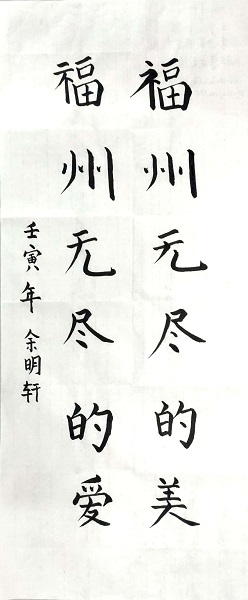 福州无尽的美
福州无尽的爱
壬寅年余明轩